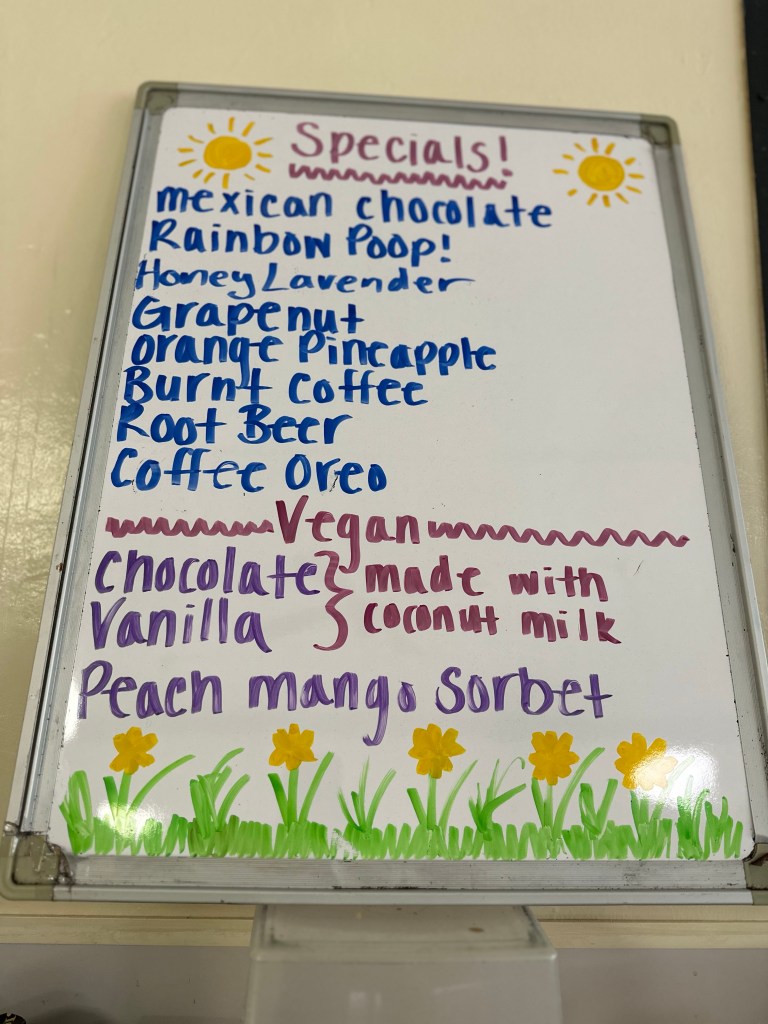 Specials!
mexican chocolate
Rainbow Poop!
Honey Lavender
Grapenut
orange Pineapple
Burnt Coffee
Root Beer
Coffee Oreo
Vegan
Chocolate } made with
Vanilla } coconut milk
Peach mango Sorbet